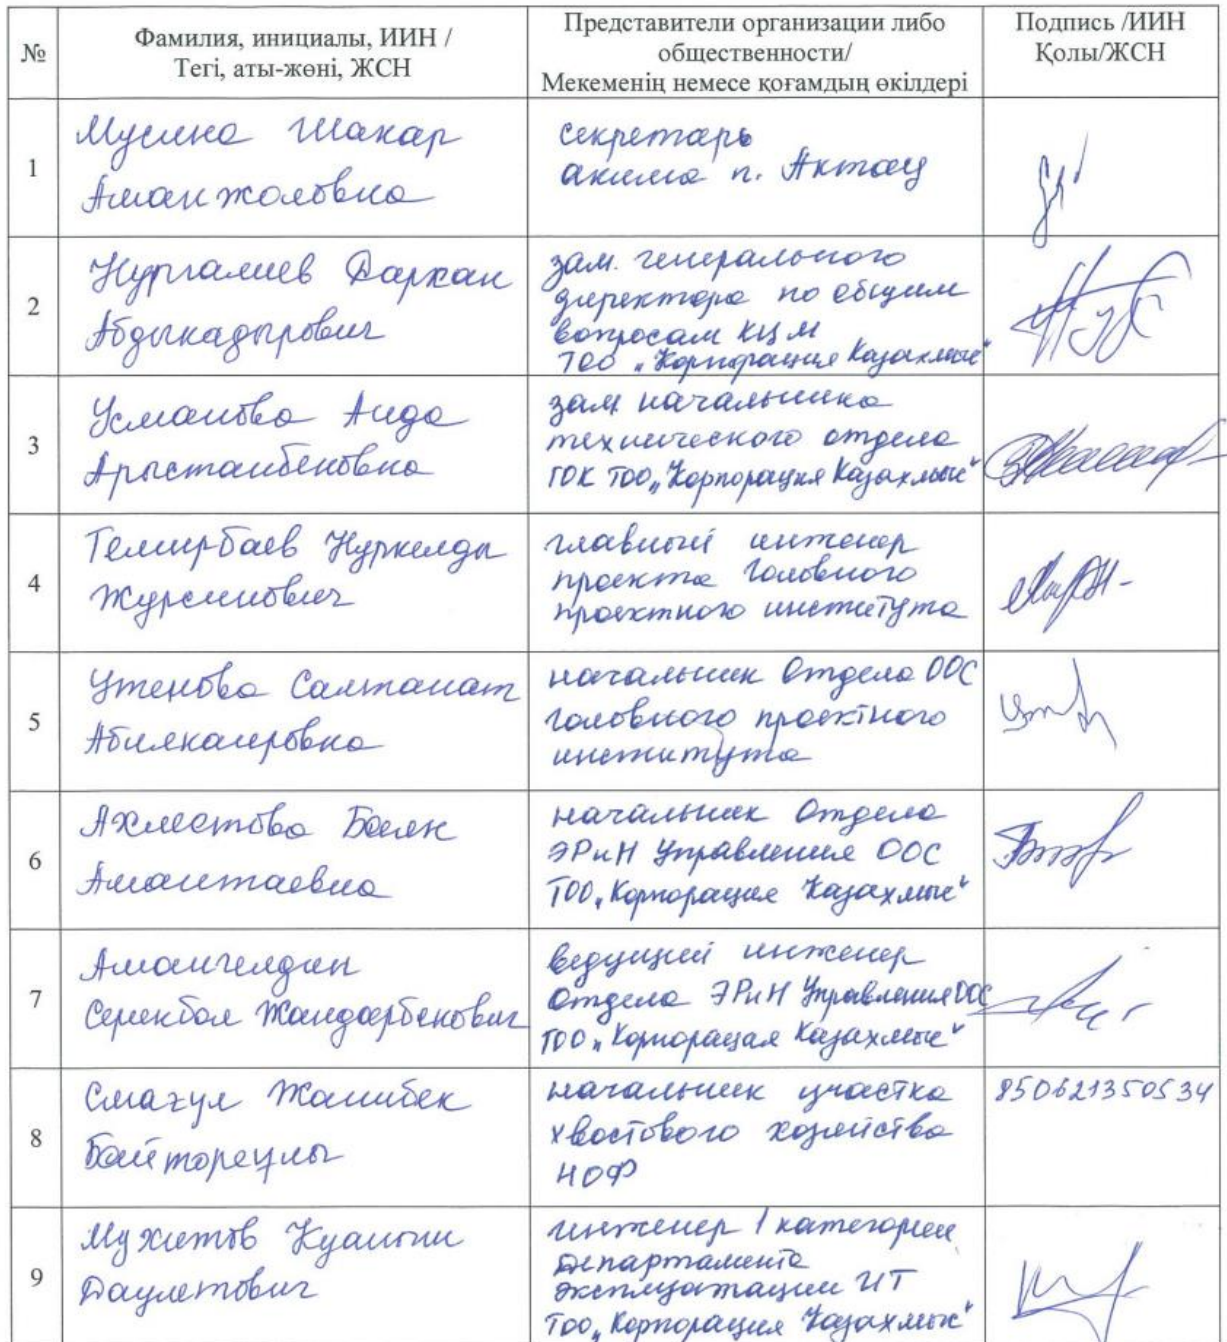 №
Фамилия, инициалы, ИИН /
Тегі, аты-жөні, ЖСН
Представители организации либо
общественности/
Мекеменің немесе қоғамдың өкілдері
Подпись /ИИН
Қолы/ЖСН
1
Мусина Шакар
Аманжоловна
секретарь
акима п. Актау
2
Нургалиев Даркан
Абдыкадырович
зам. генерального
директора по общим
вопросам КЦМ
ТОО „Корпорация Казахмыс“
3
Усманова Аида
Арыстанбековна
зам начальника
технического отдела
ГОК ТОО „Корпорация Казахмыс“
4
Темирбаев Нуркелды
Журсинович
главный инженер
проекта Головного
проектного института
5
Утенова Салтанат
Абилкаировна
начальник Отдела ООС
головного проектного
института
6
Ахметова Баян
Амантаевна
начальник Отдела
ЭРиН Управления ООС
ТОО „Корпорация Казахмыс“
7
Амангелдин
Серикбол Жандарбекович
ведущий инженер
Отдела ЭРиН Управления ООС
ТОО „Корпорация Казахмыс“
8
Смагул Жанибек
Байтореулы
начальник участка
хвостового хозяйства
НОФ
850621350534
9
Мухитов Куаныш
Даулетович
инженер 1 категории
Департамента
эксплуатации ИТ
ТОО „Корпорация Казахмыс“